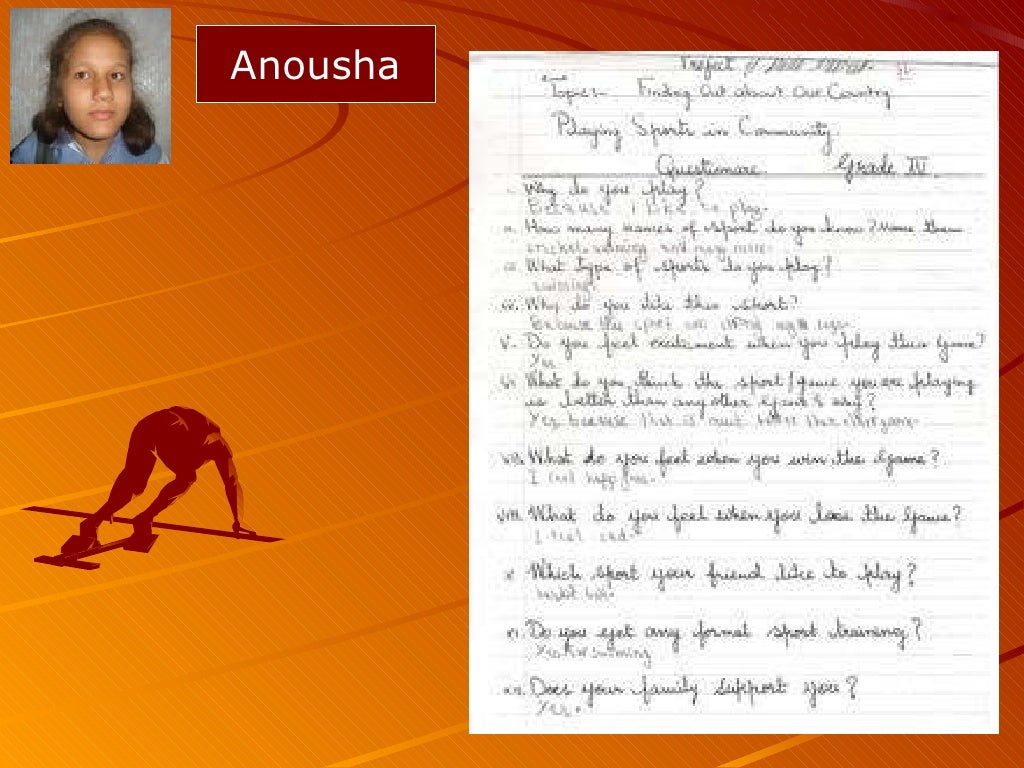 Anousha
Project
Topic:- Finding Out about Our Country
Playing Sports in Community
Questionare Grade IV.
i. Why do you play?
Because I like to play.
ii. How many names of sport do you know? Name them
and many more.
iii. What type of sports do you play?
iv. Why do you like this short?
Because this sport
v. Do you feel excitement when you play this game?
Yes
vi. What do you think the sport/game you are playing
is better than any other game &
Yes because this is
vii. What do you feel when you win the game?
I feel happy
viii. What do you feel when you lose the game?
I feel sad.
x. Which sport your friend like to play?
xi. Do you get any formal sport training?
Yes
xii. Does your family support you?
Yes.